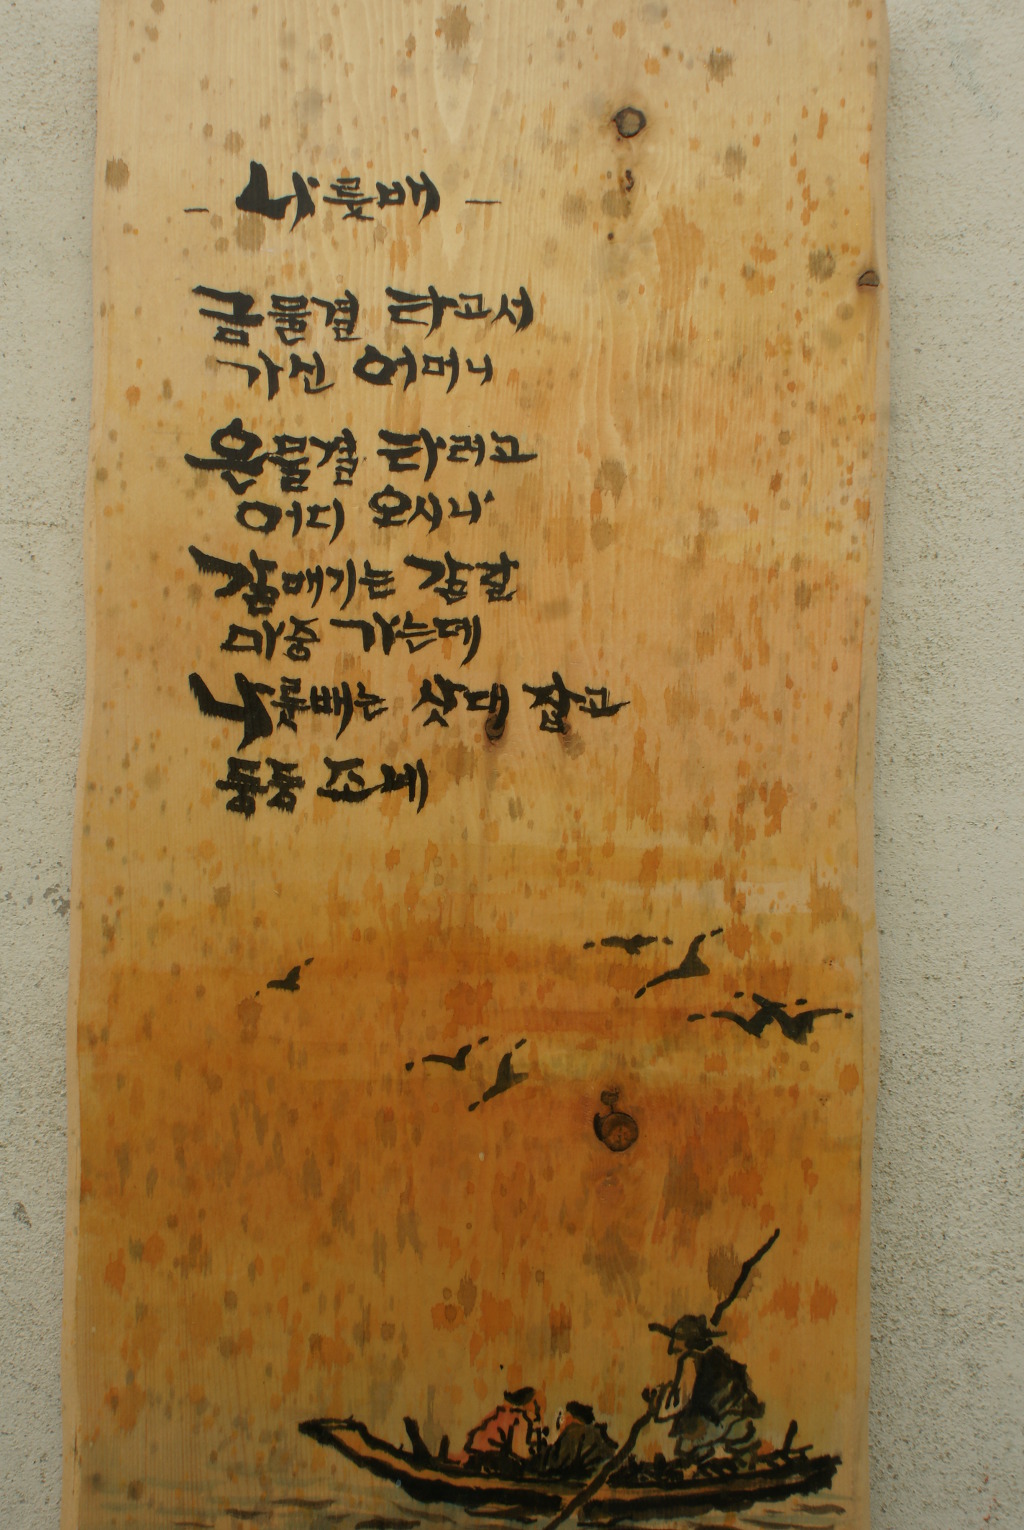 - 나룻배 -
금물결 타고서
가신 어머니
은물결 타려고
어디 오시나
갈매기는 갈갈
마중 가는데
나룻배는 삿대 잡고
동동 조네